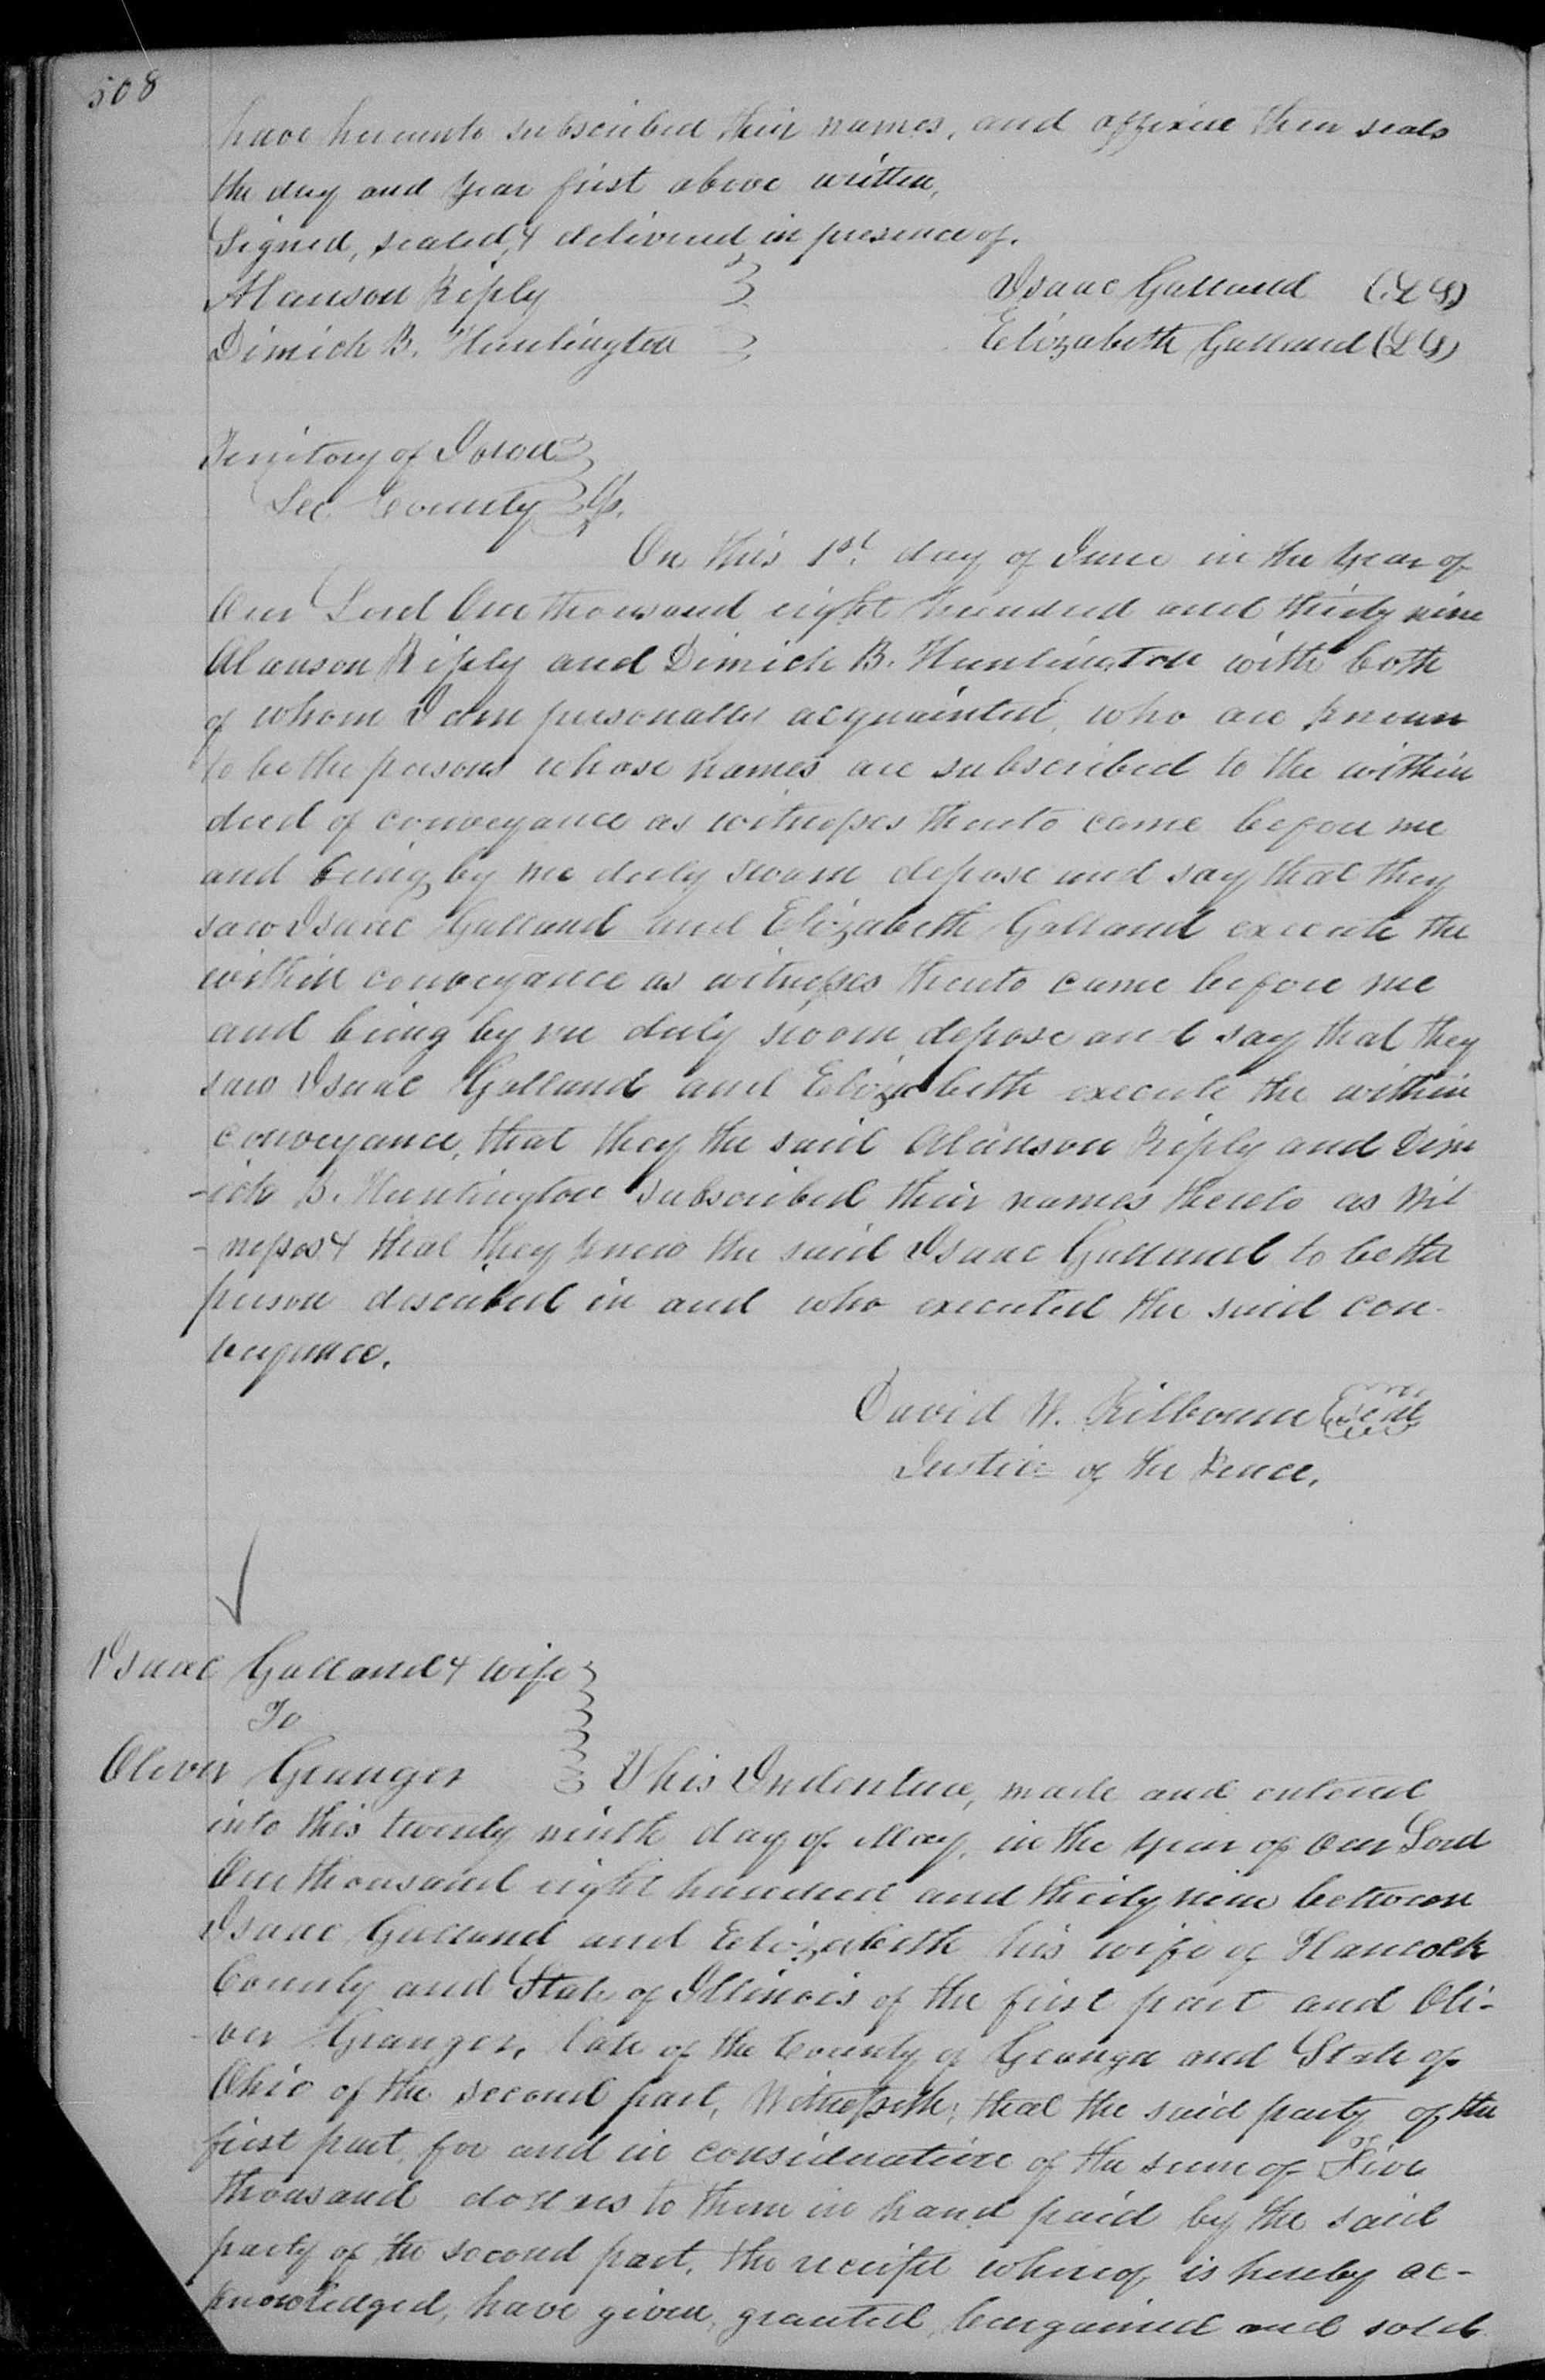 508
have hereunto subscribed their names, and affixed their seals
the day and year first above written,
Signed, sealed, & delivered in presence of.
Alanson Riply Isaac Galland (LS)
Dimick B. Huntington Elizabeth Galland (LS)
Territory of Iowa
Lee County Ss.
On this 1st day of June in the year of
Our Lord One thousand eight hundred and thirty nine
Alanson Riply and Dimick B. Huntington with both
of whom I am personally acquainted, who are known
to be the persons whose names are subscribed to the within
deed of conveyance as witnesses thereto came before me
and being by me duly sworn depose and say that they
saw Isaac Galland and Elizabeth Galland execute the
within conveyance as witnesses thereto came before me
and being by me duly sworn depose and say that they
saw Isaac Galland and Elizabeth execute the within
conveyance, that they the said Alanson Riply and Dim
-ick B. Huntington subscribed their names thereto as Wit
-nesses & that they knew the said Isaac Galland to be the
person described in and who executed the said con-
veyance.
David W. Kilbourn Seal
Justice of the Peace.
Isaac Galland & wife
To
Oliver Granger This Indenture, made and entered
into this twenty ninth day of May, in the year of Our Lord
One thousand eight hundred and thirty nine between
Isaac Galland and Elizabeth his wife of Hancock
County and State of Illinois of the first part and Oli-
ver Granger, late of the County of Geauga and State of
Ohio of the second part, Witnesseth; that the said party of the
first part, for and in consideration of the sum of Five
thousand dollars to them in hand paid by the said
party of the second part, the receipt whereof is hereby ac-
knowledged, have given, granted, bargained and sold